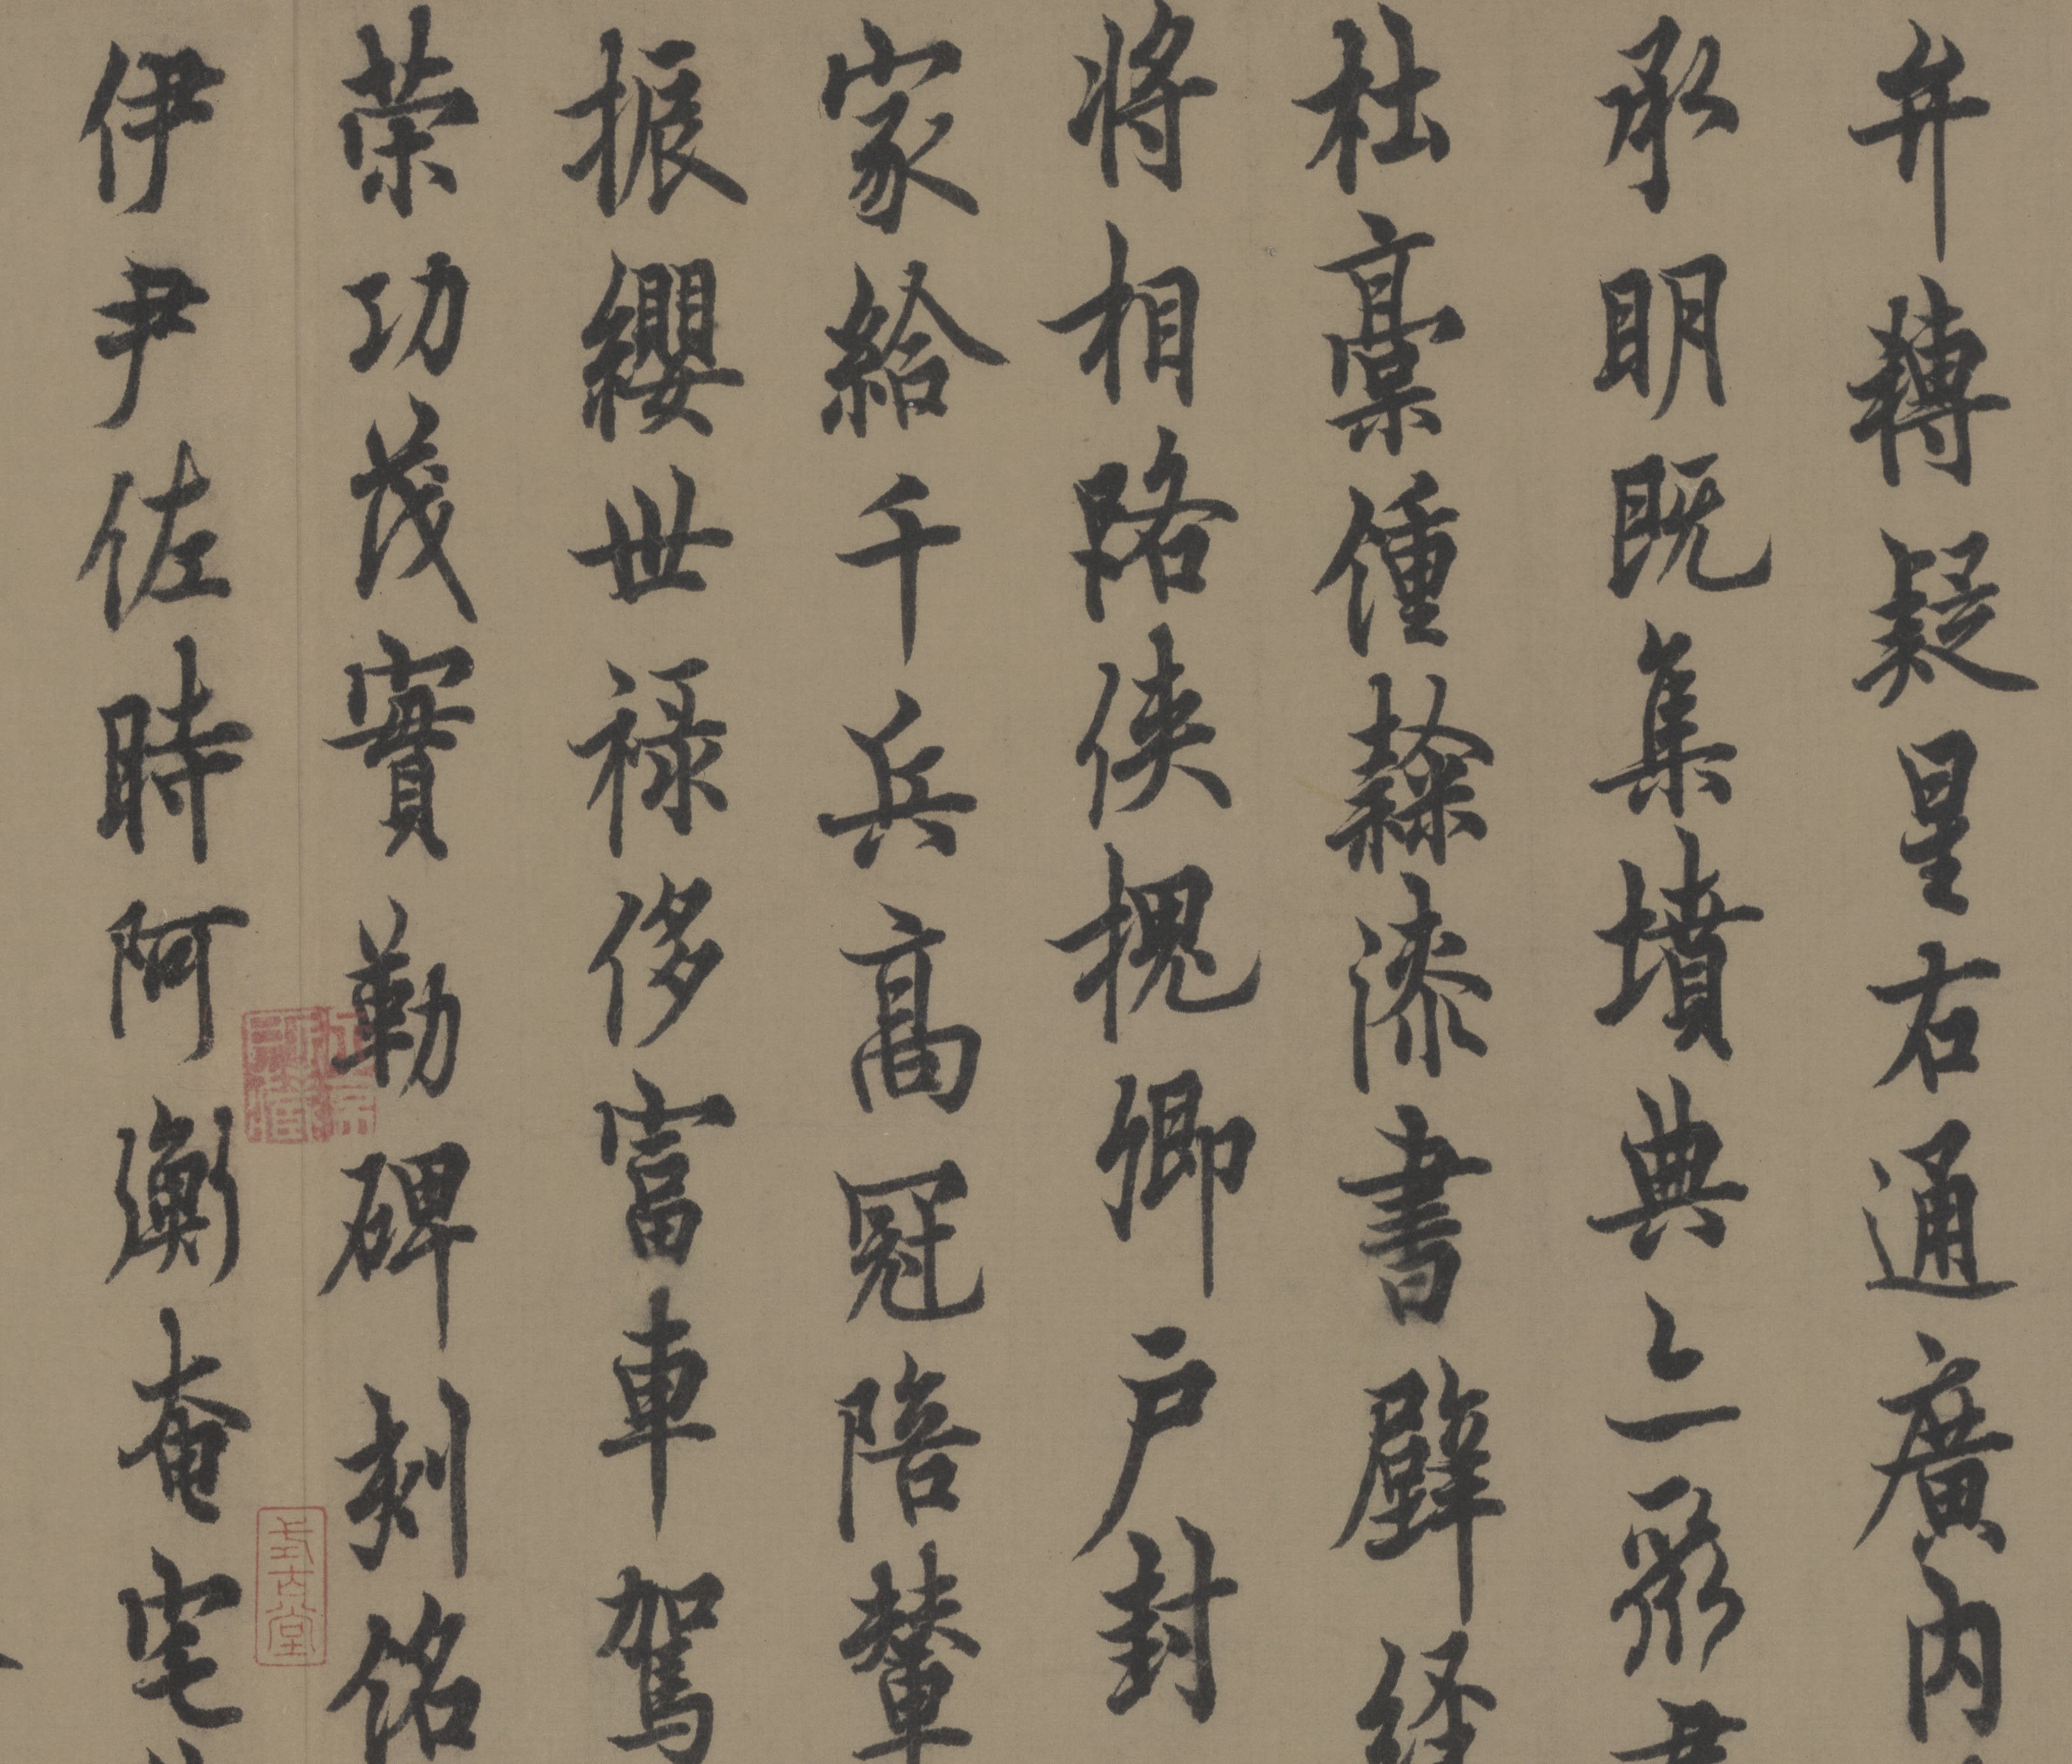 弁轉疑星右通廣内
承明既集墳典亦聚
杜稾鍾隸漆書壁經
將相路俠槐卿户封
家給千兵高冠陪輦
振纓世禄侈富車駕
策功茂實勒碑刻銘
伊尹佐時阿衡奄宅
式古堂